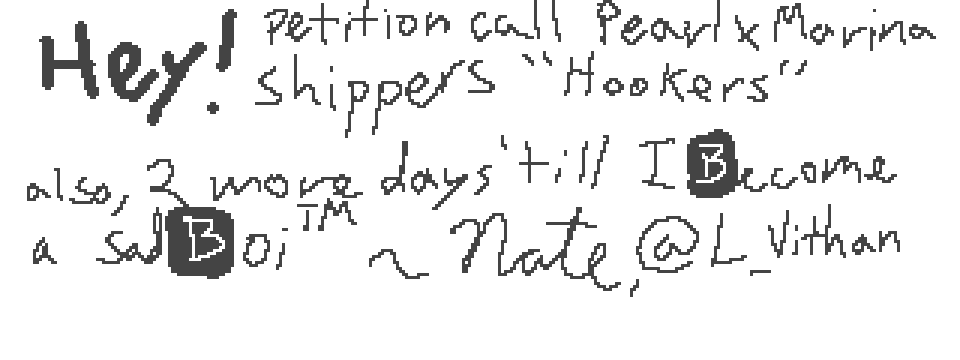 Hey! petition call Pearl x Marina
shippers "Hookers"
also, 2 more days 'till I Become
a sad Boi™ ~ Nate, @L_Vithan